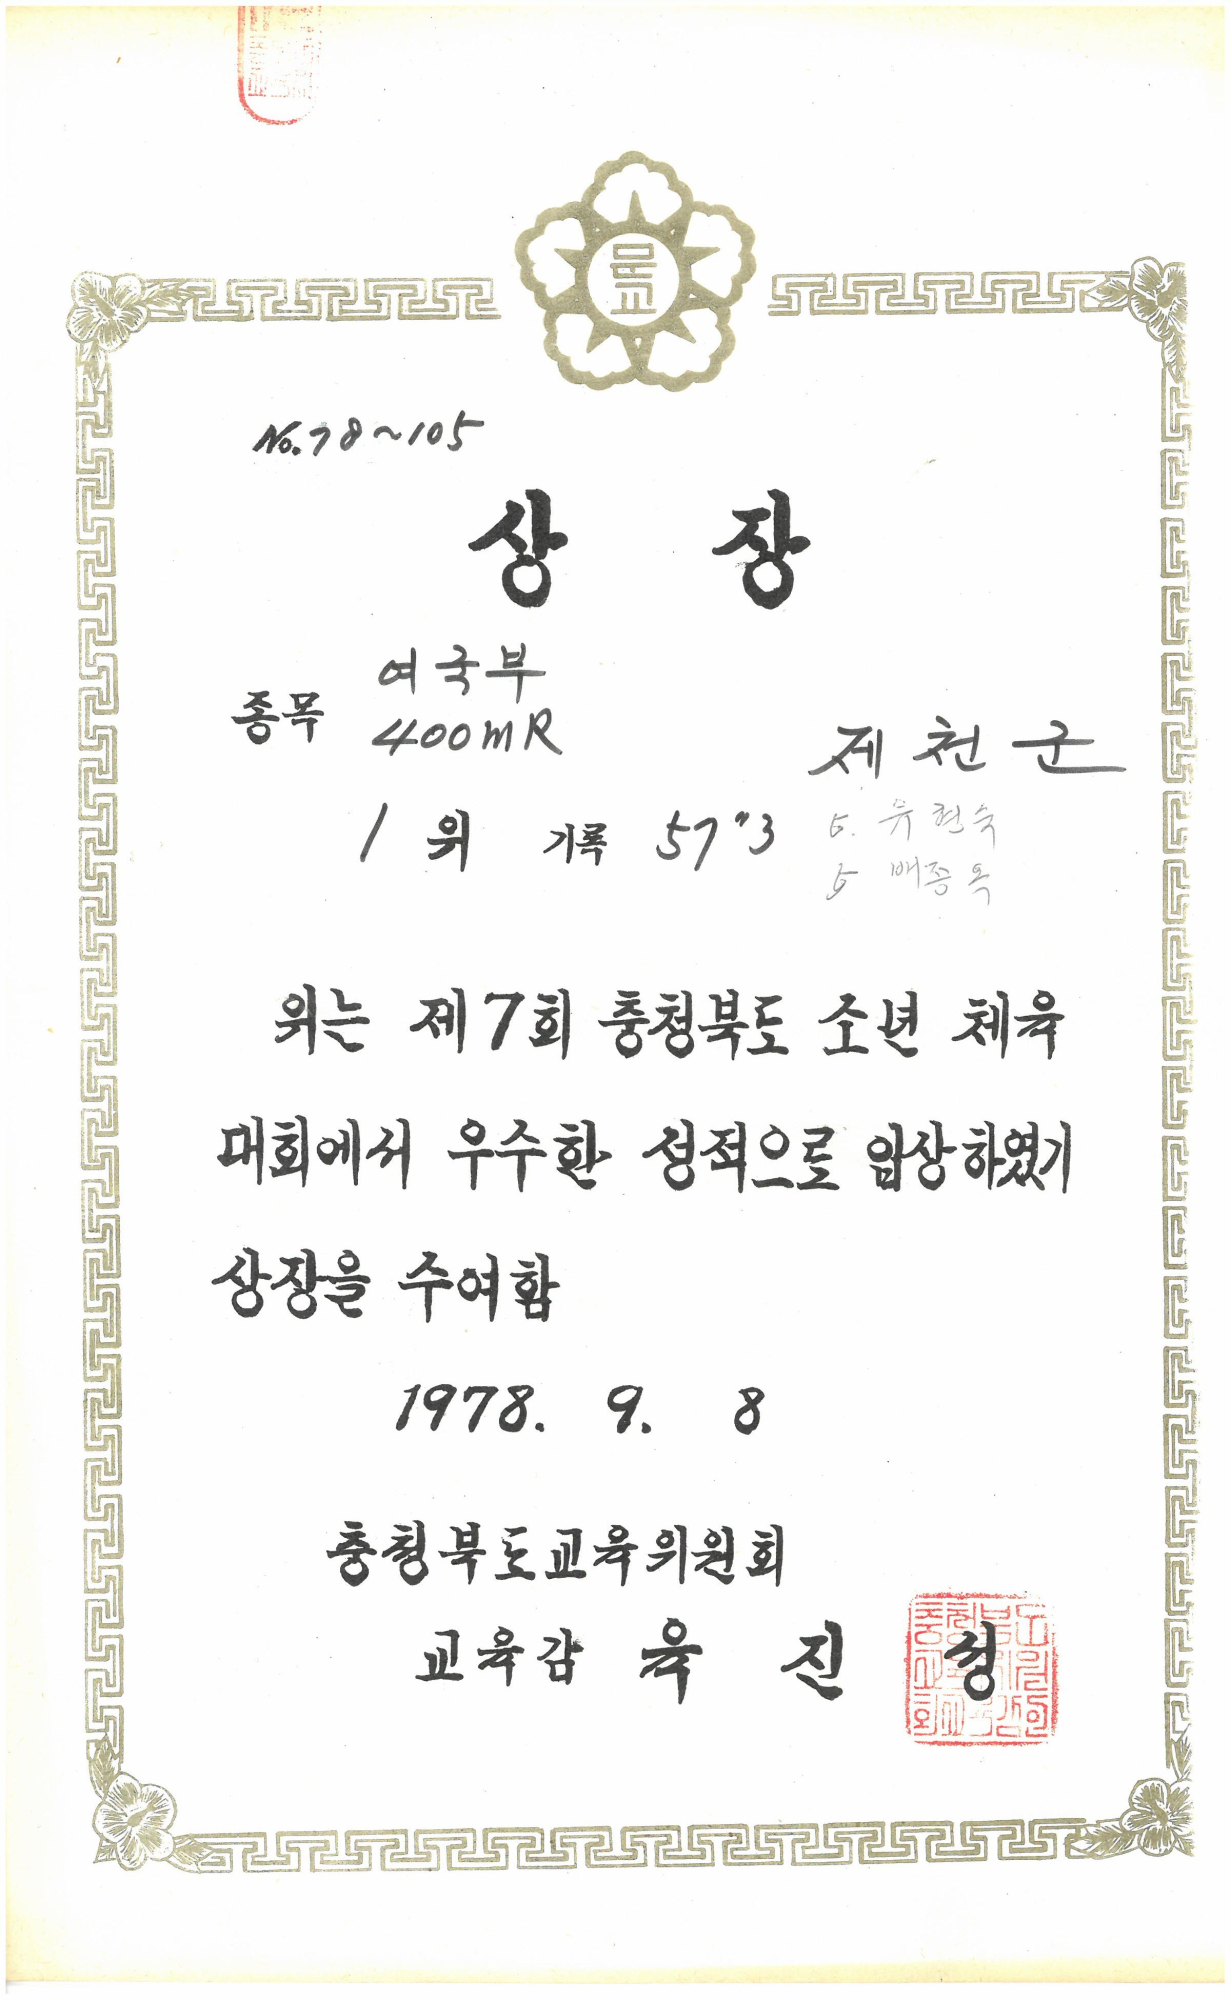 문교
No. 78~105
상 장
종목 여국부
400mR
제천군
1 위 기록 57"3
5. 유현숙
5 배종옥
위는 제7회 충청북도 소년 체육
대회에서 우수한 성적으로 입상하였기
상장을 수여함
1978. 9. 8
충청북도교육위원회
교육감 육 진 성